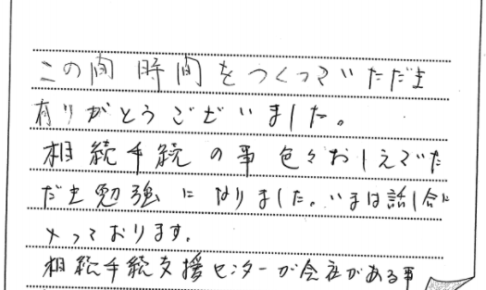 この間時間をつくっていただき
有りがとうございました。
相続手続の事色々おしえていた
だき勉強になりました。いまは話し合いに
入っております。
相続手続支援センターが会社がある事